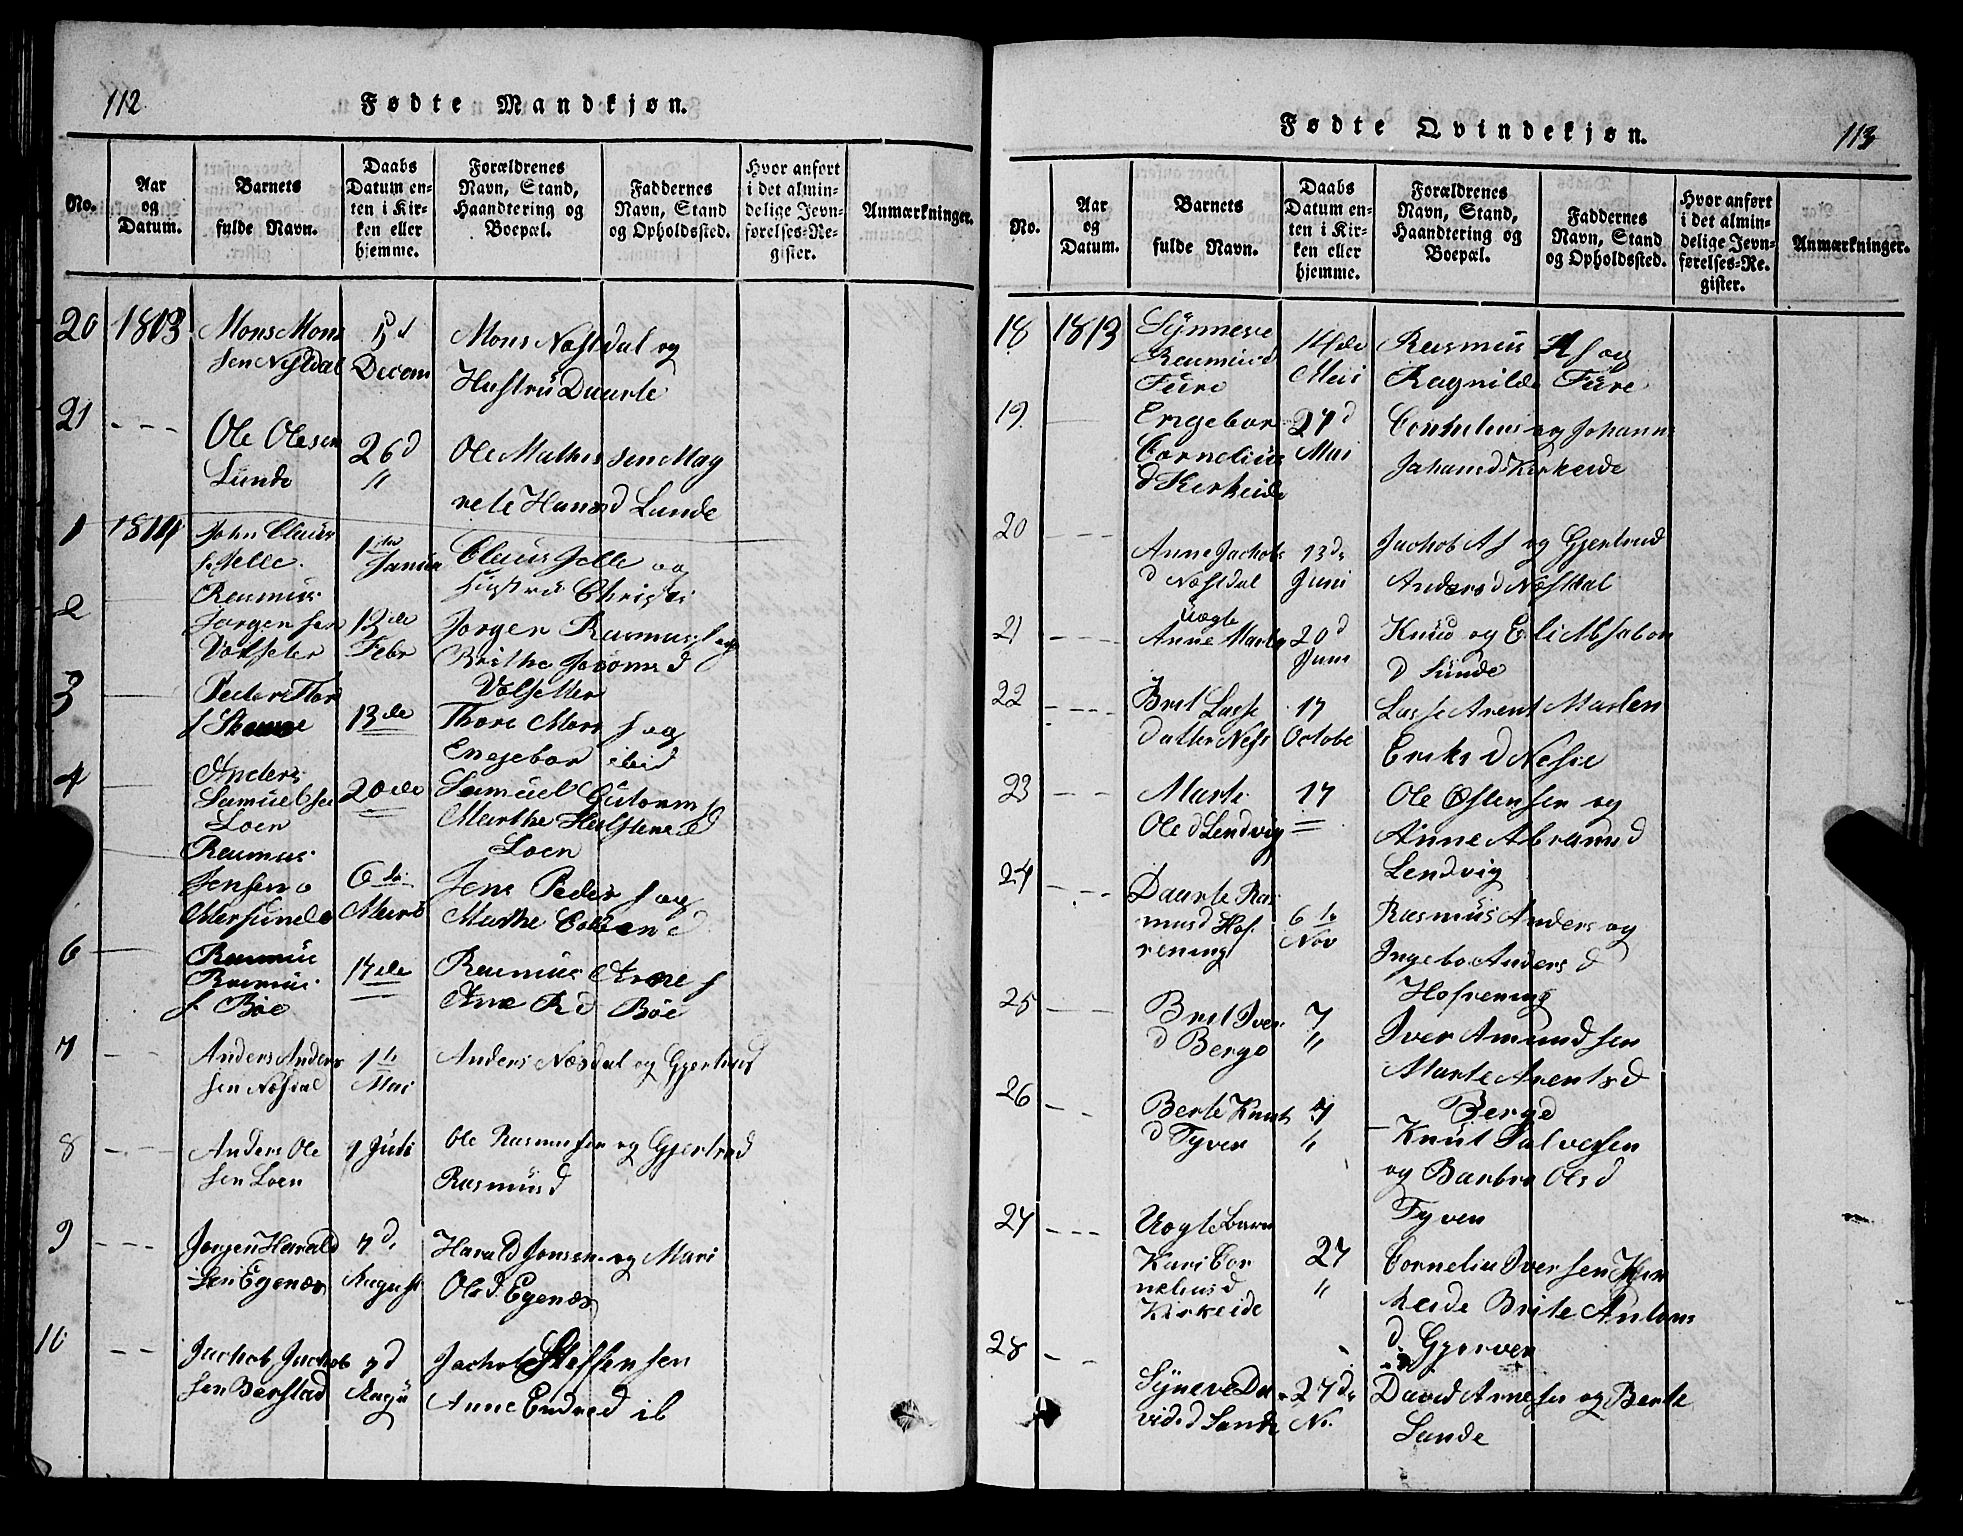 112.
Fødte Mandkjøn.
No.
Aar
og
Datum.
Barnets
fulde Navn.
Daabs
Datum en-
ten i Kir-
ken eller
hjemme.
Forældrenes
Navn, Stand,
Haandtering og
Boepæl.
Faddernes
Navn, Stand
og Opholdssted.
Hvor anført
i det almin-
delige Jevn-
førelses-Re-
gister.
Anmærkninger.
20 1813 Mons Mons
sen Nestdal
5 d
Decem
Mons Næstdal og
Hustru Daarte
21 - - - Ole Olesen
Lunde
26 d
"
Ole Mathis sen Mag
rete Hansd Lunde
1 1814 John Claus
s Jelle.
1te
Januar
Claus Jelle og
Hustru Christi
2 Rasmus
Jørgensen
Volseter
13de
Febr
Jørgen Rasmus s og
Brithe d
Volsetter
3 Peder Thor
s
13de
Thore Mons s og
Engebor ibid
4 Anders
Samuelsen
Loen
20de
Samuel Gutorm s
Marthe d
Loen
Rasmus
Jensen
Mersunde
6te
Marts
Jens Peder s og
Marthe d
6 Rasmus
Rasmus
s Böe
17de
Rasmus Arne s
Ane R d Böe
7 - - Anders Anders
sen Nesdal
1te
Mai
Anders Næsdal og Gjertrud
8 - - - Anders Ole
sen Loen
1 Juli
Ole Rasmussen og Gjertrud
Rasmusd
9 - - - Jørgen Harald
sen Egenæs
7 d.
August
Harald Jonsen og Mari
Olsd Egenæs
10 - - Jachob Jachob
sen Berstad
7 d
Augu
Jachob Steffensen
Anne Endred ib
Fødte Qvindekjøn.
113
No.
Aar
og
Datum.
Barnets
fulde Navn.
Daabs
Datum en-
ten i Kir-
ken eller
hjemme.
Forældrenes
Navn, Stand,
Haandtering og
Boepæl.
Faddernes
Navn, Stand
og Opholdssted.
Hvor anført
i det almin-
delige Jevn-
førelses-Re-
gister.
Anmærkninger.
18 1813 Synneve
Rasmusd
Fure
14de
Mai
Rasmus A s og
Ragnilde Fure
19 Engebor
Cornelius
d Kirkeide
27 d
Mai
Cornelius og Johann
Johansd Kirkeide
20 - - - Anne Jachobs
d Næstdal
13de
Juni
Jachob A s og Gjertrud
Andersd Næstdal
21 - - Uægte
Anne Marte
20 d
Juni
Knud og Eli Absalon
d Sunde
22 - - - - Brit Lasse
datter Nesi
17
Octobe
Lasse Arent Marten
Eriks d Nesie
23 - - Marte
Ole d Lendvig
17
"
Ole Østensen og
Anne Abramsd
Lendvig
24 - - - Daarte Ras
musd Hof
rening
6te
Nov
Rasmus Anders og
Ingebo Anders d
Hofrening
25 - - - Brit Iver
d Berge
7
"
Iver Amundsen
Marte Arentsd
Berge
26 - - Berte Knut
d Tyven
7
"
Knut Salvesen
og Barbro Olsd
Tyven
27 - - - Uægte Barn
Kari Cor
neliusd
Kirkeide
27
"
Cornelius Iversen Kir
keide Brite Antons
d. Gjerven
28 - - Syneve Da
vidsd Sande
27de
No.
David Arnesen og Berte
Sande